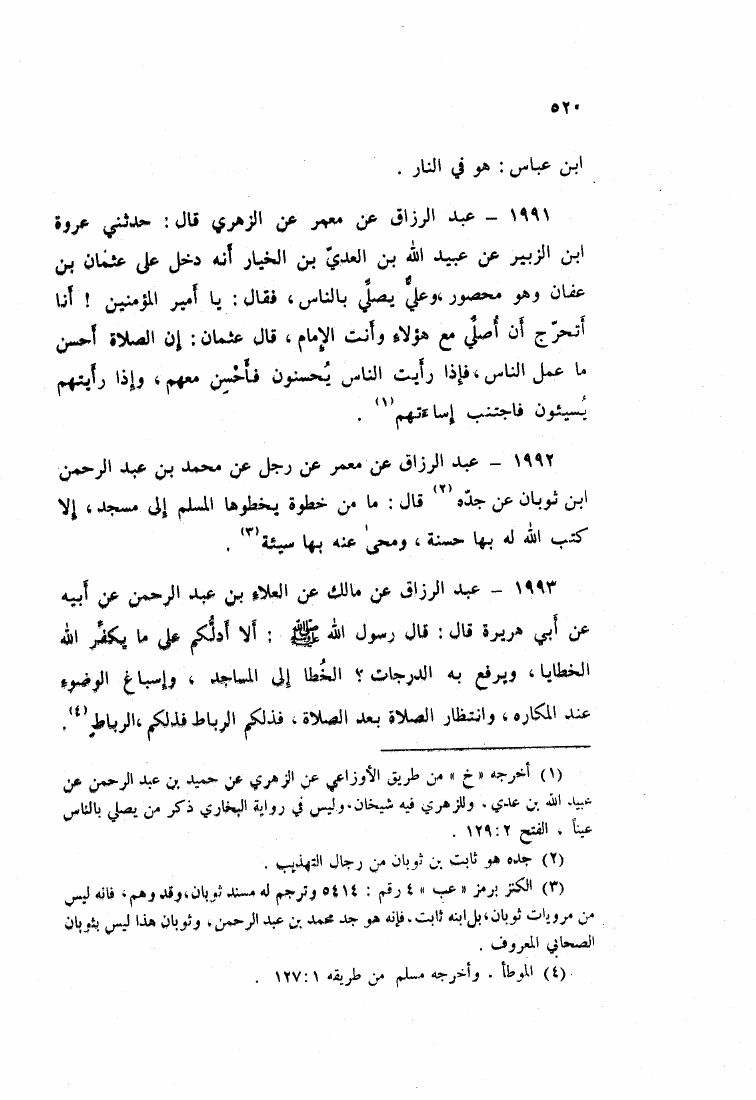 ٥٢٠
ابن عباس : هو في النار .
١٩٩١ – عبد الرزاق عن معمر عن الزهري قال : حدثني عروة
ابن الزبير عن عبيد الله بن العديّ بن الخيار أنه دخل على عثمان بن
عفان وهو محصور ،وعليٌّ يصلِّي بالناس ، فقال : يا أمير المؤمنين ! أنا
أتحرّج أن أُصلِّي مع هؤلاء وأنت الإمام ، قال عثمان : إن الصلاة أحسن
ما عمل الناس ،فإذا رأيت الناس يُحسنون فأَحْسِن معهم ، وإذا رأيتهم
يُسيئون فاجتنب إساءتهم (١) .
١٩٩٢ – عبد الرزاق عن معمر عن رجل عن محمد بن عبد الرحمن
ابن ثوبان عن جدّه (٢) قال : ما من خطوة يخطوها المسلم إلى مسجد ، إلا
كتب الله له بها حسنة ، ومحىٰ عنه بها سيئة (٣) .
١٩٩٣ – عبد الرزاق عن مالك عن العلاء بن عبد الرحمن عن أبيه
عن أبي هريرة قال : قال رسول الله ﷺ : ألا أدلُّكم على ما يكفِّر الله
الخطايا ، ويرفع به الدرجات ؟ الخُطا إلى المساجد ، وإسباغ الوضوء
عند المكاره ، وانتظار الصلاة بعد الصلاة ، فذلكم الرباط فذلكم ،الرباط (٤).
(١) أخرجه «خ» من طريق الأوزاعي عن الزهري عن حميد بن عبد الرحمن عن
عبيد الله بن عدي . وللزهري فيه شيخان.وليس في رواية البخاري ذكر من يصلي بالناس
عيناً . الفتح ٢ : ١٢٩ .
(٢) جده هو ثابت بن ثوبان من رجال التهذيب .
(٣) الكنز برمز «عب» ٤ رقم : ٥٤١٤ وترجم له مسند ثوبان،وقد وهم ، فانه ليس
من مرويات ثوبان،بل ابنه ثابت.فإنه هو جد محمد بن عبد الرحمن. وثوبان هذا ليس بثوبان
الصحابي المعروف .
(٤) الموطأ . وأخرجه مسلم من طريقه ١ : ١٢٧ .